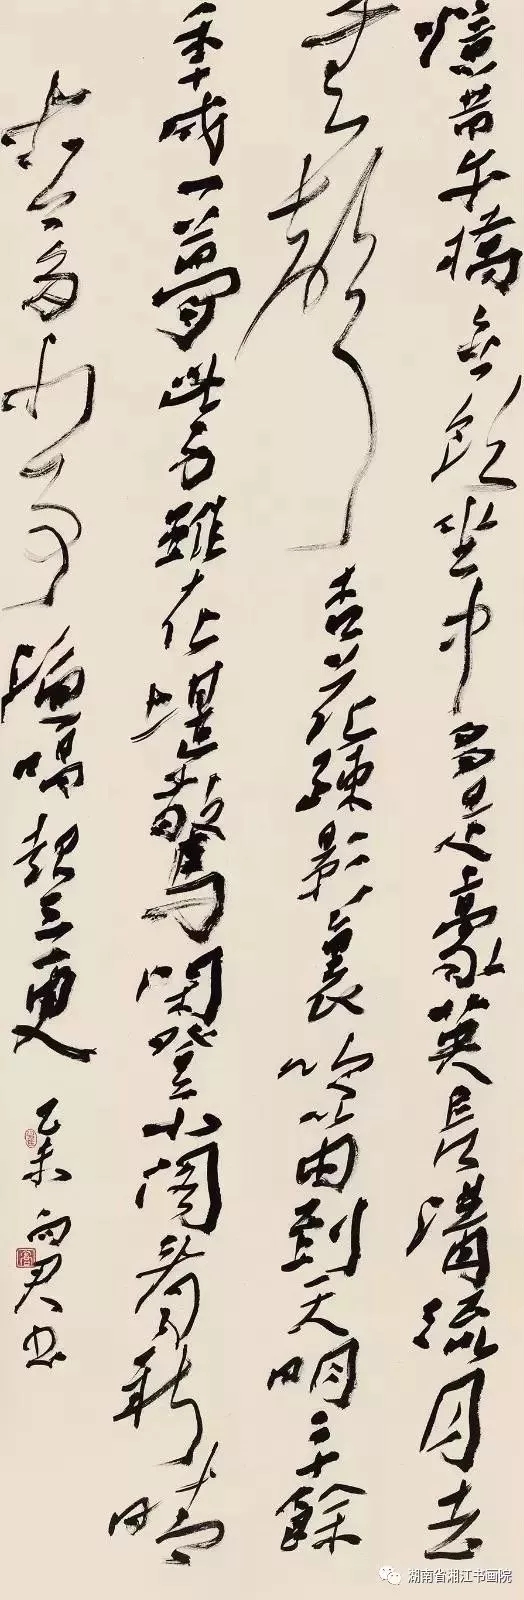 憶昔午橋上飲坐中多是豪英長溝流月去
無聲杏花疎影裏吹笛到天明二十餘
年成一夢此身雖在堪驚閑登小閣看新晴
古今多少事漁唱起三更
乙未 君書
湖南省湘江书画院